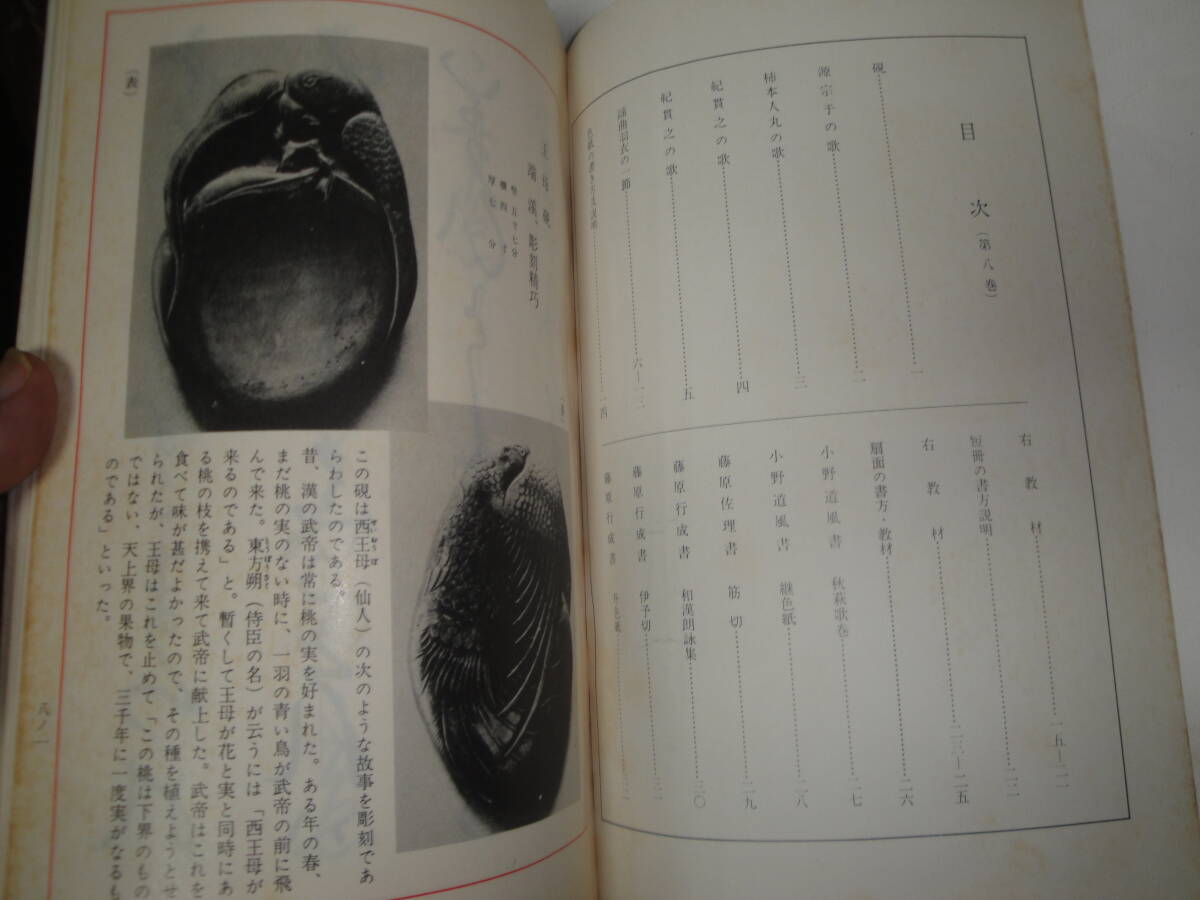 目次(第八巻)
硯…一
源宗于の歌…二
柿本人丸の歌…三
紀貫之の歌…四
紀貫之の歌…五
謡曲羽衣の一節…六—一三
色紙の書き方及説明…一四
右教材…一五—二一
短冊の書方説明…二二
右教材…二三—二五
扇面の書方・教材…二六
小野道風書 秋萩歌巻…二七
小野道風書 継色紙…二八
藤原佐理書 筋切…二九
藤原行成書 和漢朗詠集…三〇
藤原行成書 伊予切…三一
藤原行成書
王母硯
端渓、彫刻精巧
竪五寸七分
横四寸
厚七分
(表)
この硯は西王母(仙人)の次のような故事を彫刻であ
らわしたのである。
昔、漢の武帝は常に桃の実を好まれた。ある年の春、
まだ桃の実のない時に、一羽の青い鳥が武帝の前に飛
んで来た。東方朔(侍臣の名)が云うには「西王母が
来るのである」と。暫くして王母が花と実と同時にあ
る桃の枝を携えて来て武帝に献上した。武帝はこれを
食べて味が甚だよかったので、その種を植えようとせ
られたが、王母はこれを止めて「この桃は下界のもの
ではない、天上界の果物で、三千年に一度実がなるも
のである」といった。
八ノ一